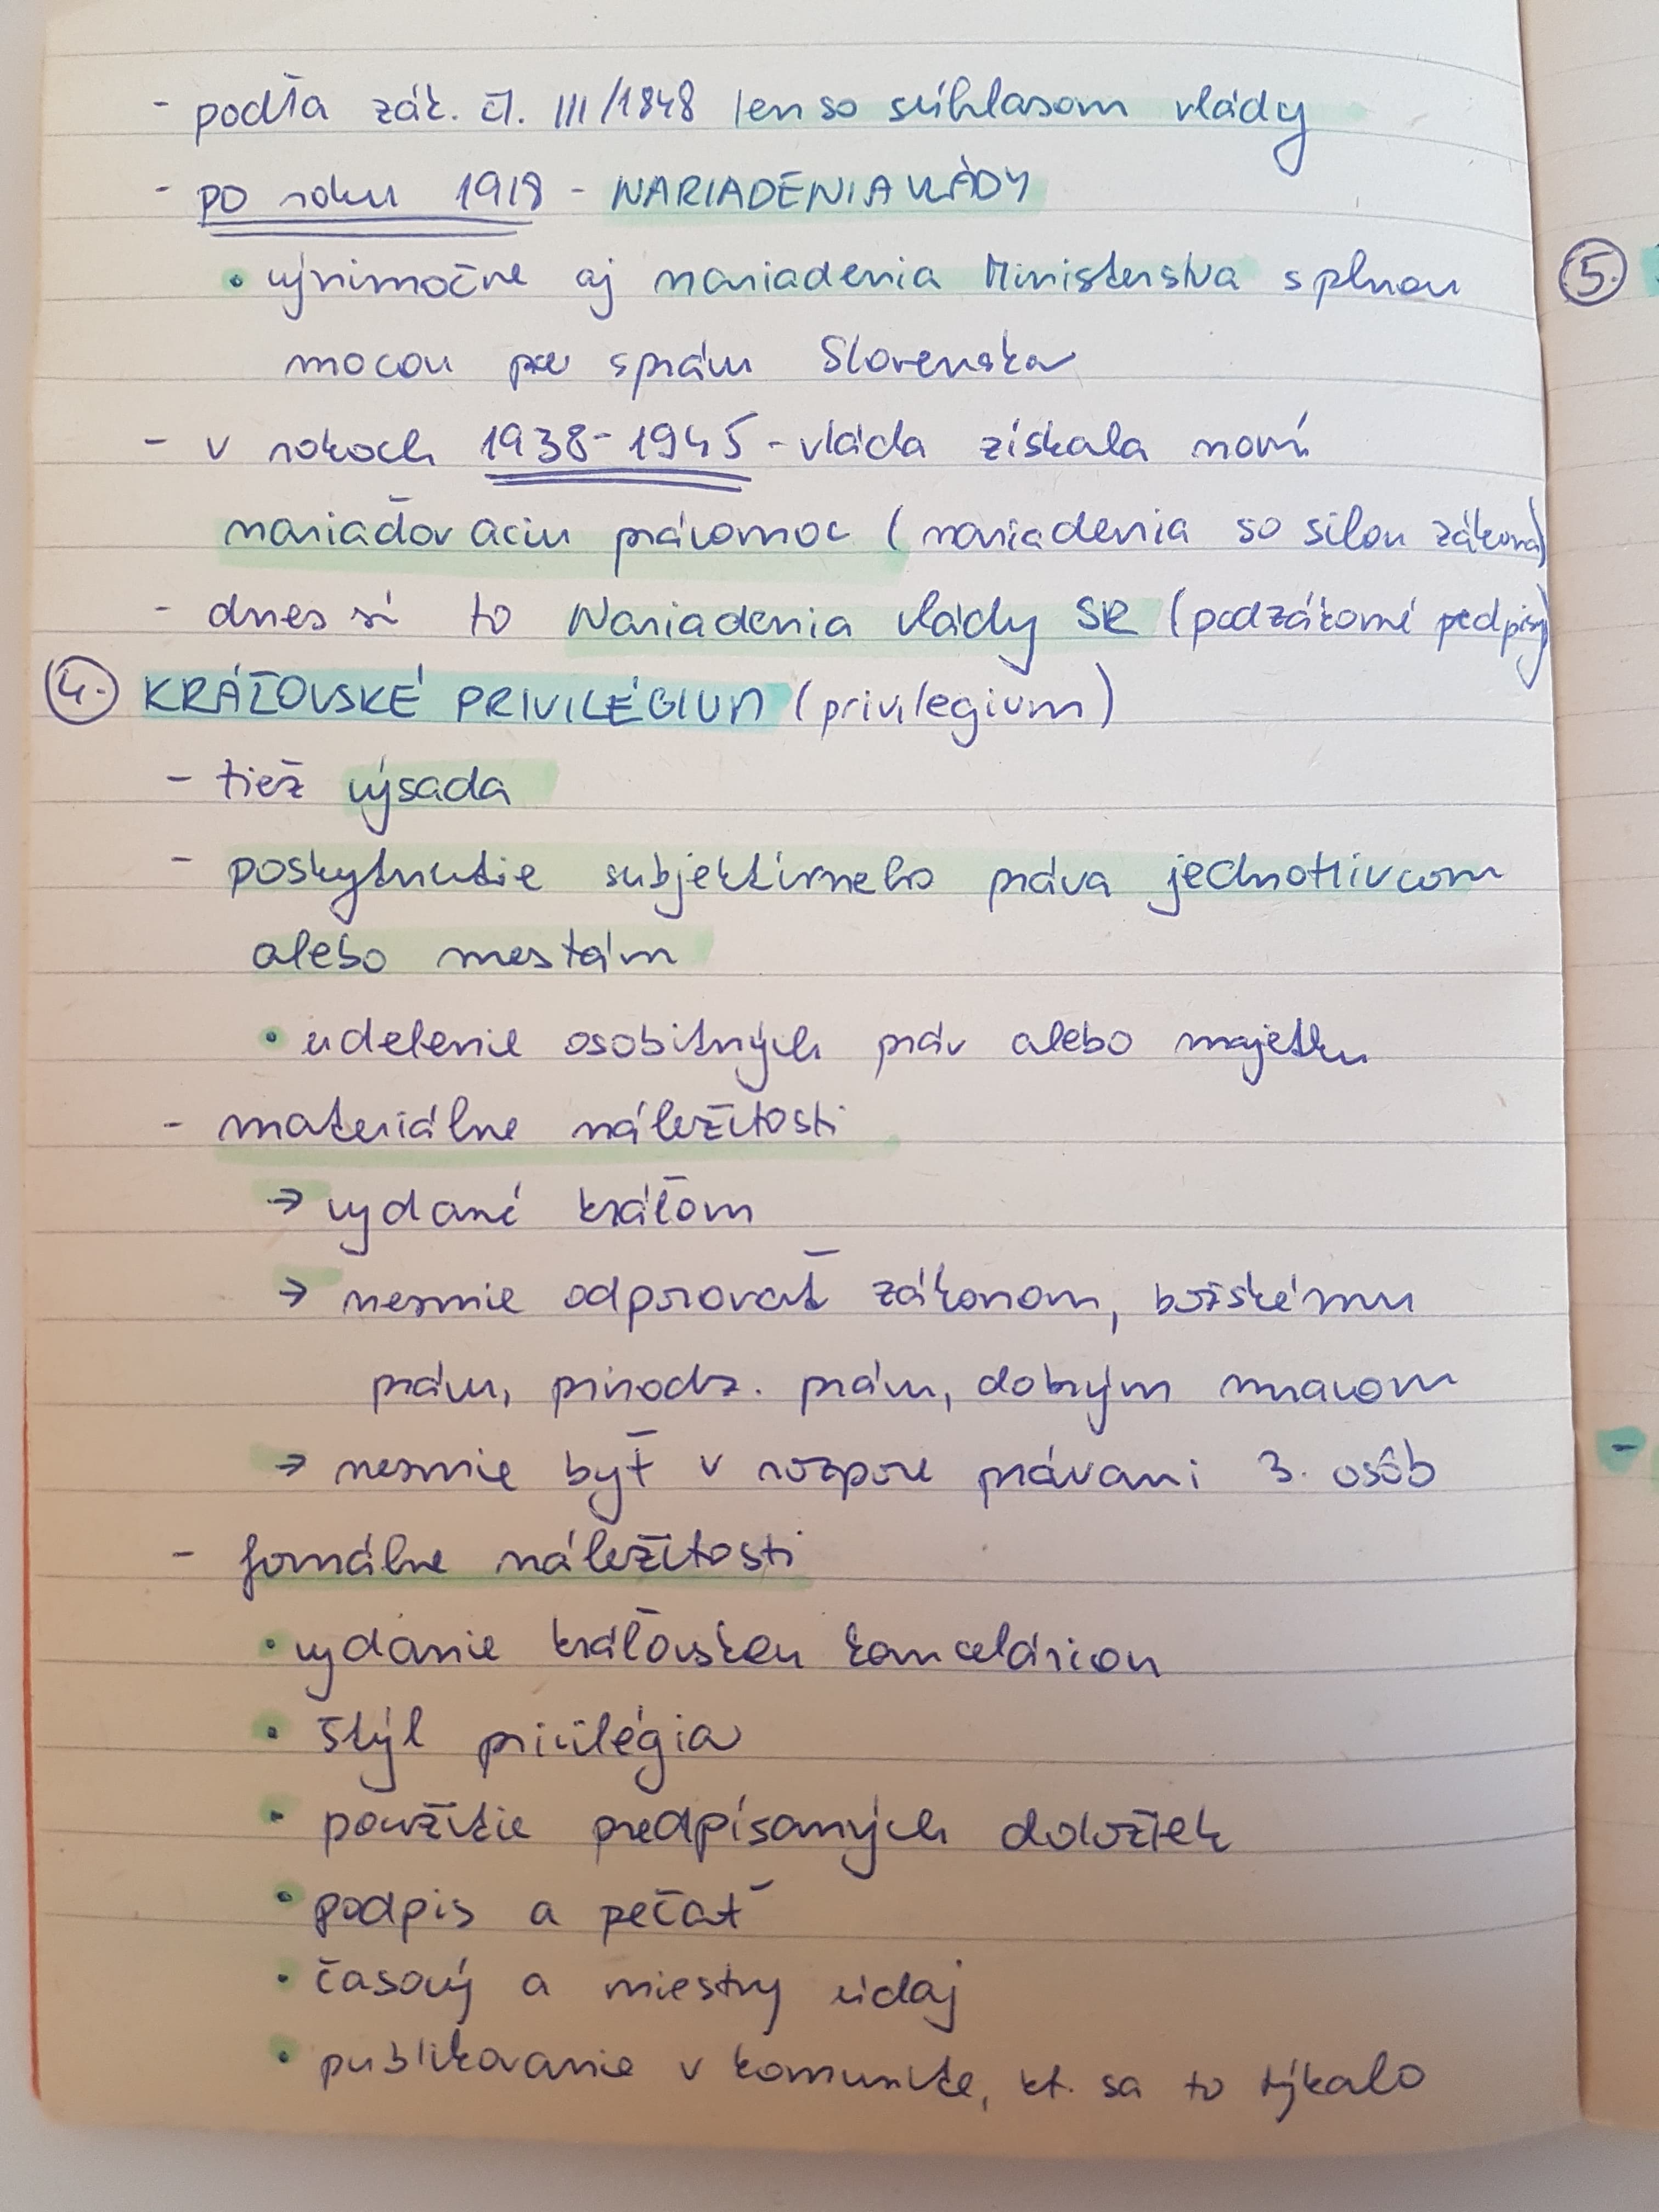 - podľa zák. čl. III/1848 len so súhlasom vlády
- po roku 1918 - NARIADENIA VLÁDY
• výnimočne aj nariadenia Ministerstva s plnou
mocou pre správu Slovenska
- v rokoch 1938-1945 - vláda získala novú
nariaďovaciu právomoc (nariadenia so silou zákona)
- dnes sú to Nariadenia vlády SR (podzákonné predpisy)
4. KRÁĽOVSKÉ PRIVILÉGIUM (privilegium)
- tiež výsada
- poskytnutie subjektívneho práva jednotlivcom
alebo mestám
• udelenie osobitných práv alebo majetku
- materiálne náležitosti
→ vydané kráľom
→ nesmie odporovať zákonom, božskému
právu, prirodz. právu, dobrým mravom
→ nesmie byť v rozpore právami 3. osôb
- formálne náležitosti
• vydanie kráľovskou kanceláriou
• štýl privilégia
• použitie predpísaných doložiek
• podpis a pečať
• časový a miestny údaj
• publikovanie v komunite, kt. sa to týkalo
5.
-